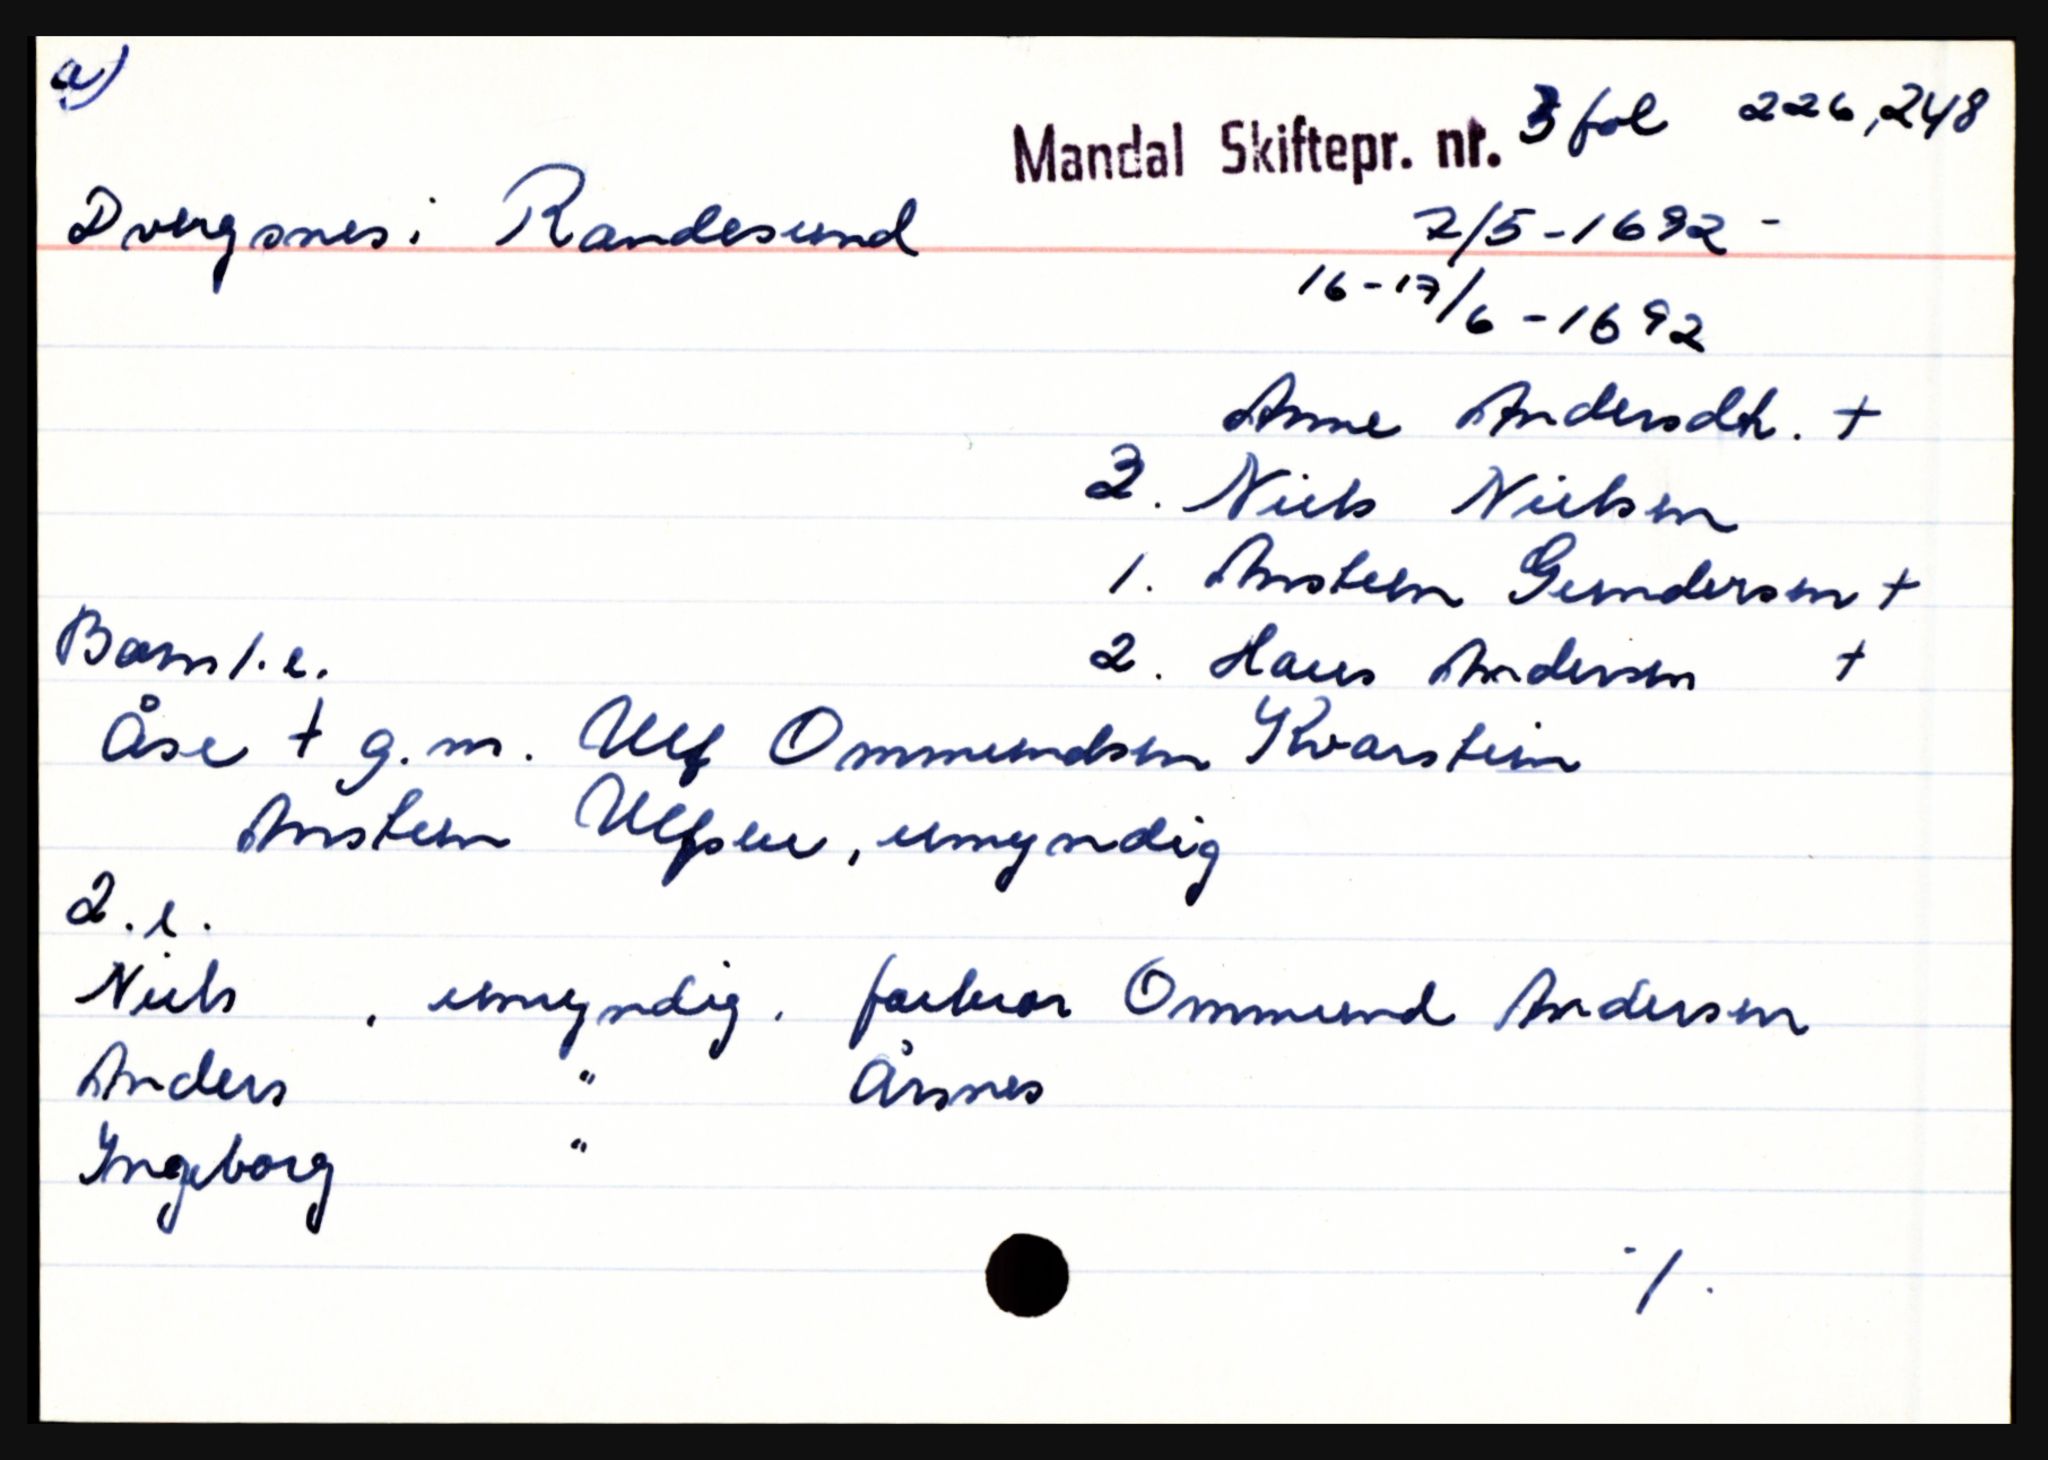 a)
Mandal Skiftepr. nr. 3 fol 226, 248
Dvergsnes i Randesund 7/5-1692 -
16-17/6-1692
Anne Andersdtr. +
3. Niels Nielsen
1. Anstein Gundersen +
2. Hans Andersen +
Barn 1. e.
Åse + g.m. Ulf Ommundsen Kvarstein
Anstein Ulfsen, umyndig
2. e.
Niels, umyndig, farbror Ommund Andersen
Anders " Årsnes
Ingeborg "
./.